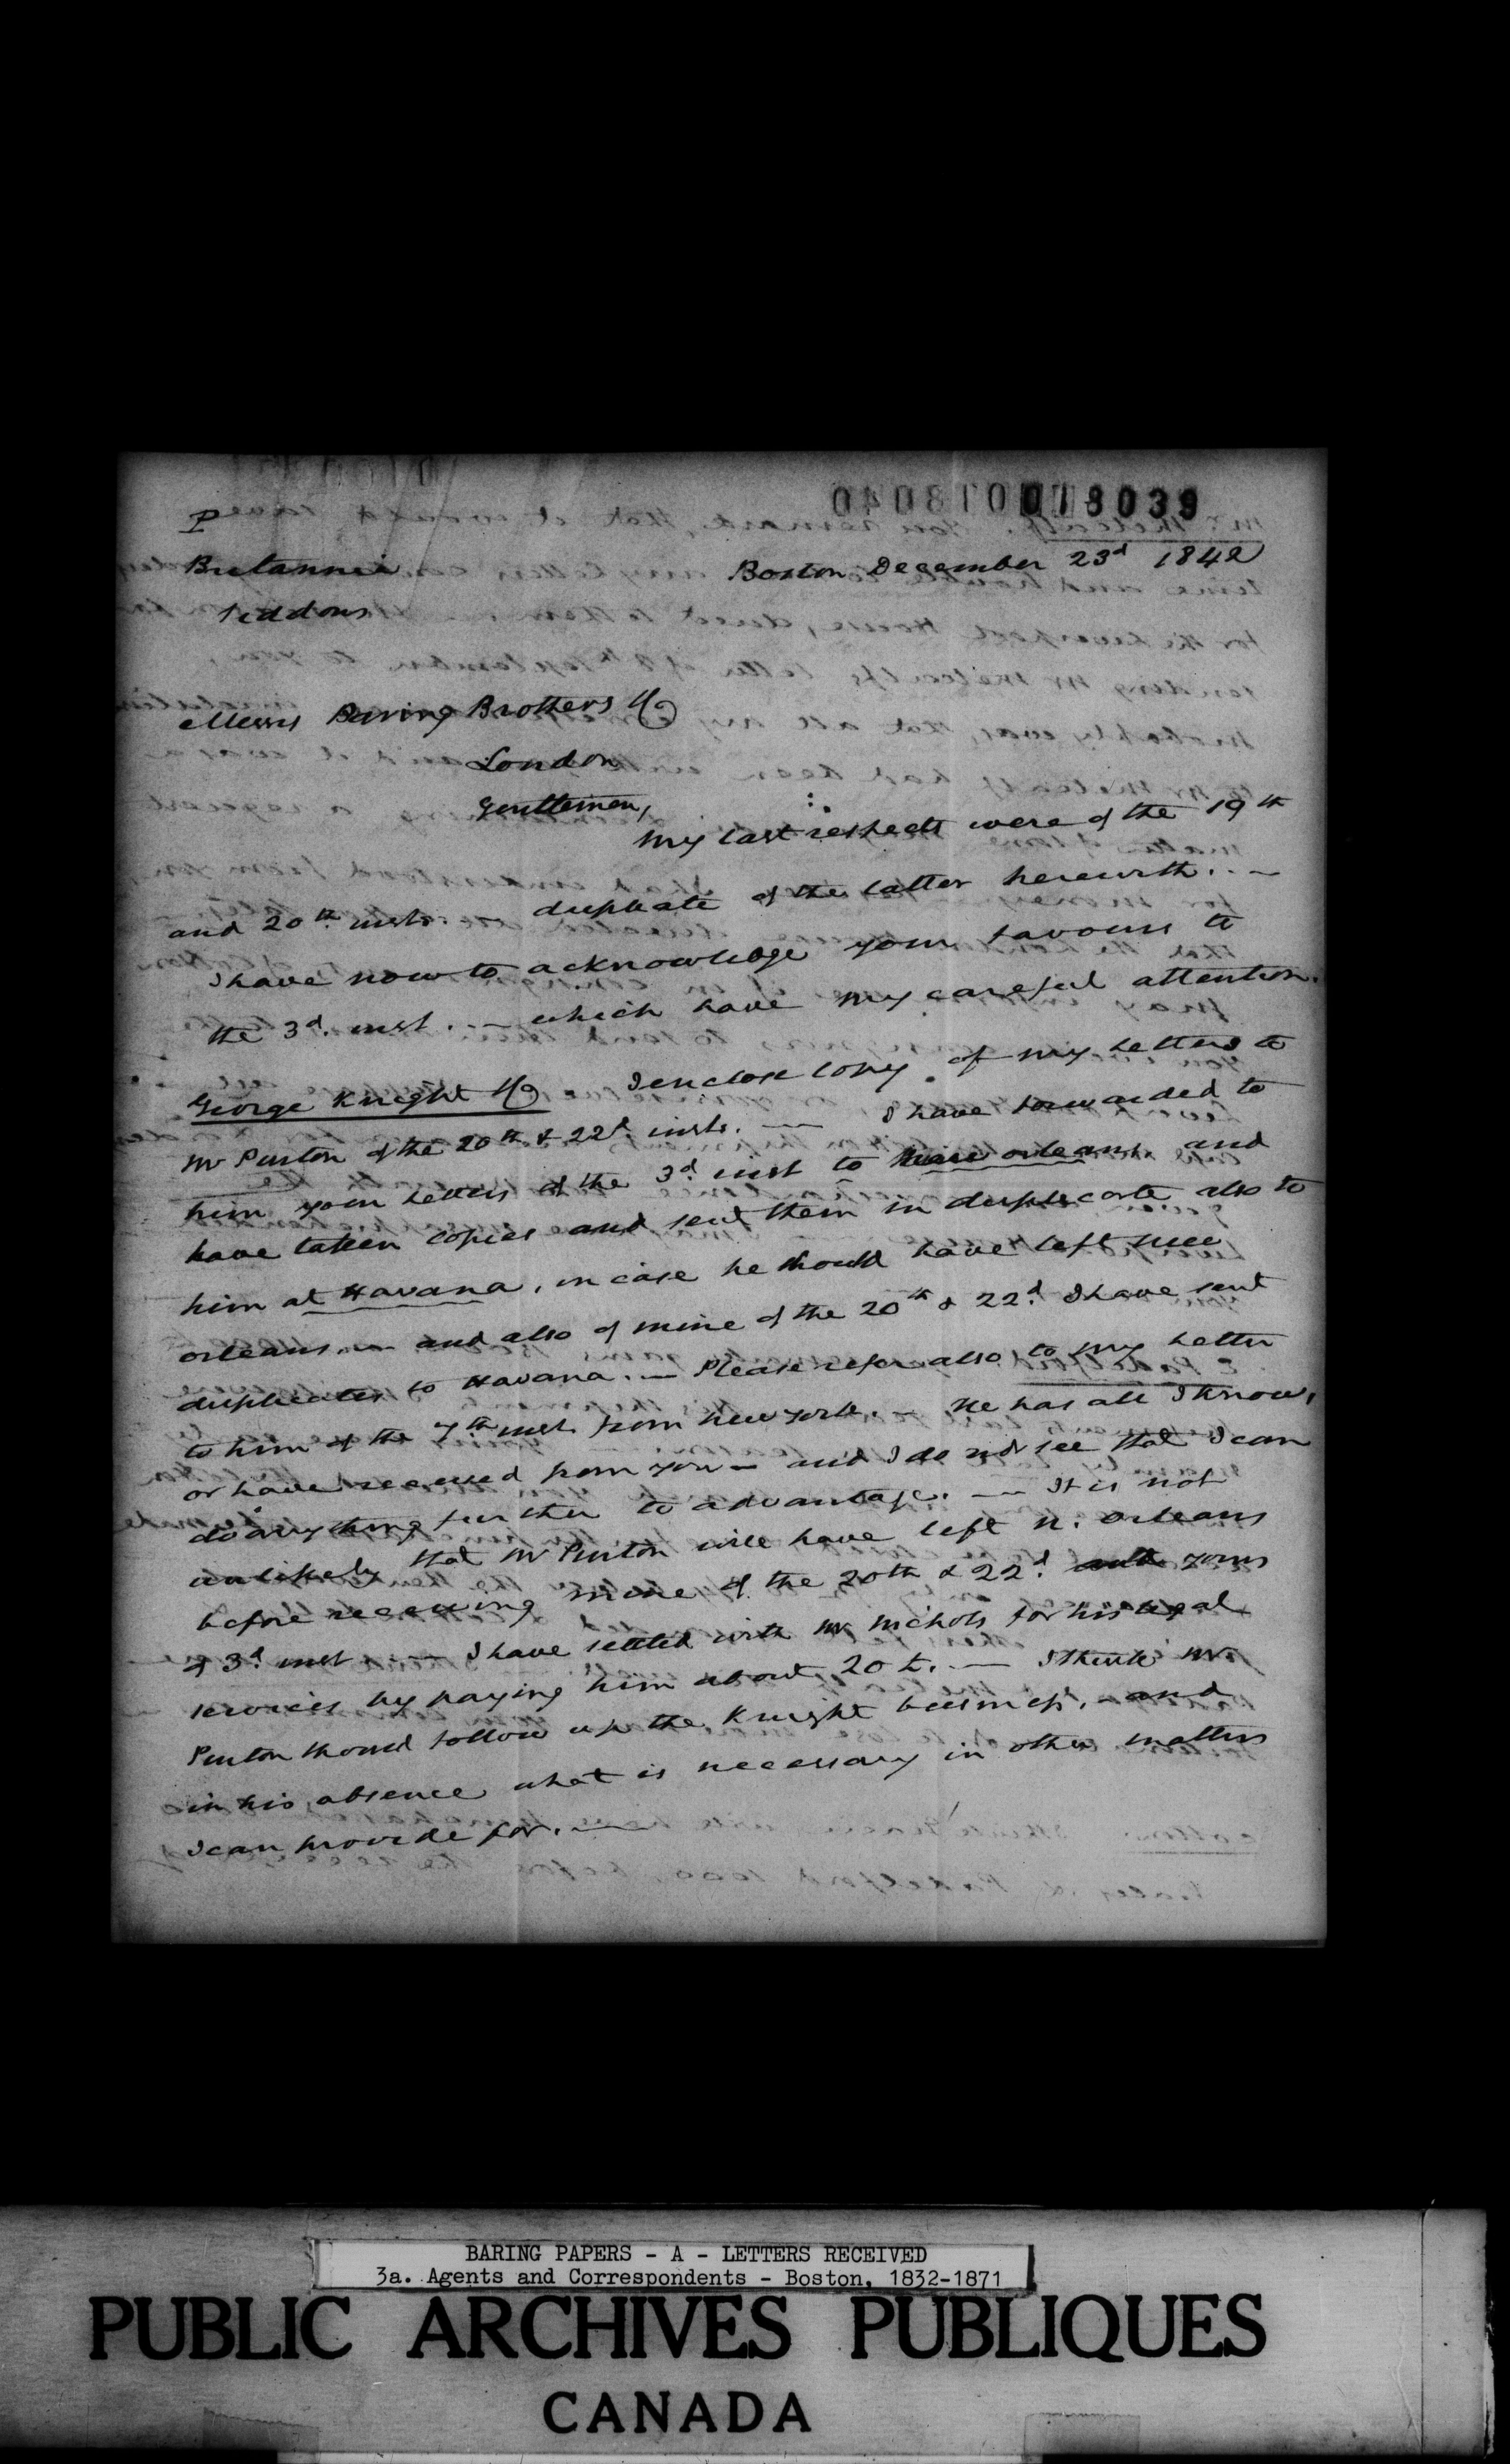 018039
P
Britannia
Siddons
Boston December 23d 1842
Messrs Baring Brothers &Co
London
Gentlemen,
My last respects were of the 19th
and 20th insts. — duplicate of the latter herewith. —
I have now to acknowledge your favours to
the 3d. inst. — which have my careful attention.
George Knight &Co I enclose copy of my letters to
Mr Purton of the 20th & 22d insts. — I have forwarded to
him your letters of the 3d inst to New orleans, and
have taken copies and sent them in duplicate also to
him at Havana, in case he should have left new
orleans. — and also of mine of the 20th & 22d. I have sent
duplicates to Havana. — Please refer also to my letter
to him of the 7th inst. from new york. — He has all I know,
or have received from you — and I do not see that I can
do anything further to advantage. — It is not
unlikely that Mr Purton will have left N. Orleans
before receiving mine of the 20th & 22d. yours
of 3d. inst. — I have settled with Mr Nichols for his legal
services by paying him about 20 £. — I think Mr
Purton should follow up the Knight business, and
in his absence what is necessary in other matters
I can provide for. —
BARING PAPERS - A - LETTERS RECEIVED
3a. Agents and Correspondents - Boston, 1832-1871
PUBLIC ARCHIVES PUBLIQUES
CANADA